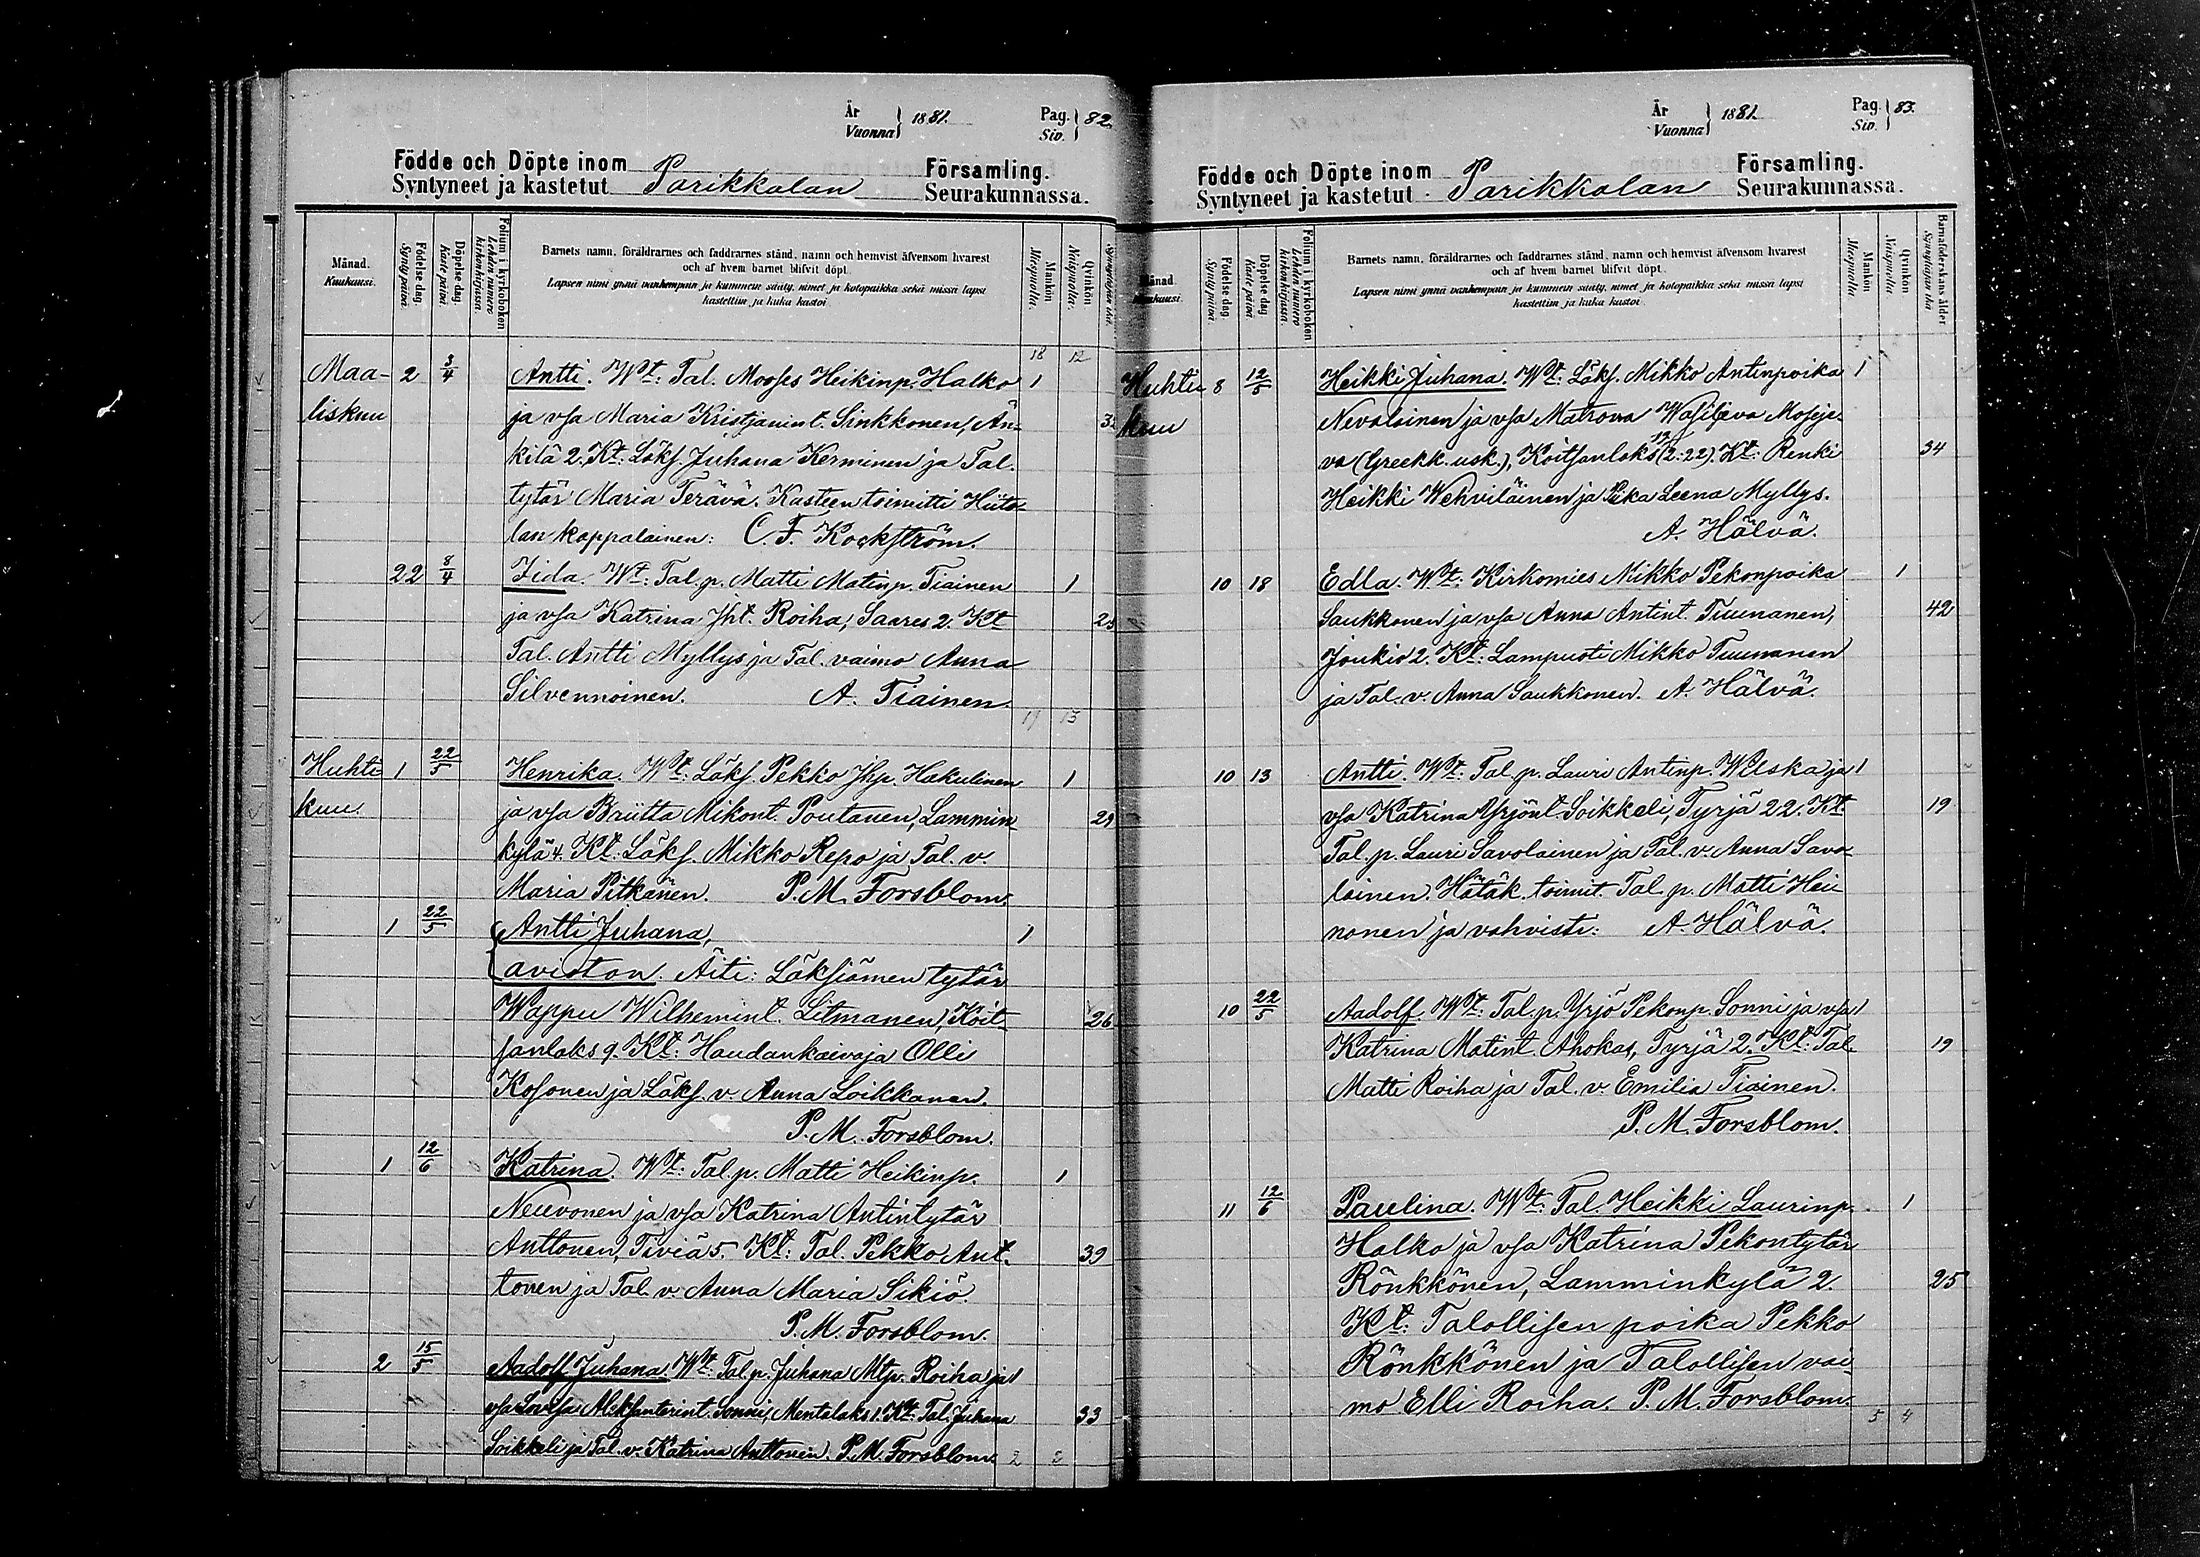 År
Vuonna } 1881.
Pag.
Siv. } 82.
Födde och Döpte inom
Syntyneet ja kastetut Parikkalan
Församling.
Seurakunnassa.
Månad.
Kuukausi.
Födelse dag.
Synty päivä.
Döpelse dag.
Kaste päivä.
Folium i kyrkoboken
Lehden numero
kirkonkirjassa.
Barnets namn, föräldrarnes och faddrarnes stånd, namn och hemvist äfvensom hvarest
och af hvem barnet blifvit döpt.
Lapsen nimi ynnä vanhempain ja kummein sääty, nimet ja kotopaikka sekä missä lapsi
kastettiin ja kuka kastoi.
Mankön
Miespuolia.
Qvinkön
Naispuolia.
18 12
Maa- 2 3/4 Antti. Wt: Tal. Mooses Heikinp. Halko 1
liskuu ja vsa Maria Kristjanint. Sinkkonen, Än- 32
kilä 2. Kt: Läks. Juhana Kerminen ja Tal.
tytär Maria Terävä. Kasteen toimitti Hiito-
lan kappalainen: C. F. Kockström.
22 8/4 Iida. Wt: Tal. p. Matti Matinp. Tiainen 1
ja vsa Katrina Jht. Roiha, Saares 2. Kt
Tal. Antti Myllys ja Tal. vaimo Anna
Silvennoinen. A. Tiainen.
19 13
Huhti- 1 22/5 Henrika. Wt: Läks. Pekko Jhp. Hakulinen 1
kuu. ja vsa Briitta Mikont. Poutanen, Lammin- 29
kylä 4. Kt: Läks. Mikko Repo ja Tal. v.
Maria Pitkänen. P. M. Forsblom.
1 22/5 Antti Juhana, 1
avioton. Äiti: Läksiämen tytär
Wappu Wilhemint. Litmanen, Koit- 26
sanlaks 9. Kt: Haudankaivaja Olli
Kosonen ja Läks. v. Anna Loikkanen.
P. M. Forsblom.
1 12/6 Katrina. Wt: Tal. p. Matti Heikinp. 1
Neuvonen ja vsa Katrina Antintytär
Anttonen, Tiviä 5. Kt: Tal. Pekko Ant- 39
tonen ja Tal. v. Anna Maria Sikiö.
P. M. Forsblom.
2 15/5 Aadolf Juhana. Wt: Tal. p. Juhana Mtp. Roiha ja 1
vsa Lovisa Aleksanterint. Sonni, Mentalaks 1. Kt: Tal. Juhana 33
Soikkeli ja Tal. v. Katrina Anttonen. P. M. Forsblom. 2 2
År
Vuonna } 1881.
Pag.
Siv. } 83.
Födde och Döpte inom
Syntyneet ja kastetut Parikkalan
Församling.
Seurakunnassa.
Månad.
Kuukausi.
Födelse dag.
Synty päivä.
Döpelse dag.
Kaste päivä.
Folium i kyrkoboken
Lehden numero
kirkonkirjassa.
Barnets namn, föräldrarnes och faddrarnes stånd, namn och hemvist äfvensom hvarest
och af hvem barnet blifvit döpt.
Lapsen nimi ynnä vanhempain ja kummein sääty, nimet ja kotopaikka sekä missä lapsi
kastettiin ja kuka kastoi.
Mankön
Miespuolia
Qvinkön
Naispuolia
Barnaföderskans ålder
Synnyttäjän ikä
Huhti- 8 12/5 Heikki Juhana. Wt: Läks. Mikko Antinpoika 1
kuu Nevalainen ja vsa Matrona Wasiljeva Moseje-
va (Greekk. usk.), Koitsanlaks (2-22). Kt: Renki 34
Heikki Wehviläinen ja Piika Leena Myllys.
A. Hälvä.
10 18 Edla. Wt: Kirkomies Mikko Pekonpoika 1
Saukkonen ja vsa Anna Antint. Tuunanen, 42
Joukio 2. Kt: Lampuoti Mikko Tuunanen
ja Tal. v. Anna Saukkonen. A. Hälvä.
10 13 Antti. Wt: Tal. p. Lauri Antinp. Welska ja 1
vsa Katrina Yrjönt. Soikkeli, Tyrjä 22. Kt 19
Tal. p. Lauri Savolainen ja Tal. v. Anna Savo-
lainen. Hätäk. toimit. Tal. p. Matti Hei-
nonen ja vahvisti: A. Hälvä.
10 22/5 Aadolf. Wt: Tal. p. Yrjö Pekonp. Sonni ja vsa 1
Katrina Matint. Ahokas, Tyrjä 2. Kt: Tal. 19
Matti Roiha ja Tal. v. Emilia Tiainen.
P. M. Forsblom.
11 12/6 Paulina. Wt: Tal. Heikki Laurinp. 1
Halko ja vsa Katrina Pekontytär
Rönkkönen, Lamminkylä 2. 25
Kt: Talollisen poika Pekko
Rönkkönen ja Talollisen vai-
mo Elli Roiha. P. M. Forsblom.
5 4